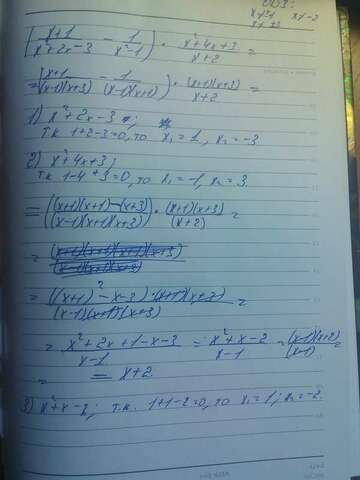 ОДЗ:
x≠1 x≠-2
(x+1/x²+2x-3 - 1/x²-1) · x²+4x+3/x+2 =
= (x+1/(x-1)(x+3) - 1/(x-1)(x+1)) · (x+1)(x+3)/x+2 =
1) x²+2x-3;
т.к. 1+2-3=0, то x₁=1, x₂=-3
2) x²+4x+3;
т.к. 1-4+3=0, то x₁=-1, x₂=3.
= ((x+1)(x+1)-(x+3)/(x-1)(x+1)(x+3)) · (x+1)(x+3)/(x+2) =
= ((x+1)²-x-3)·(x+1)(x+3)/(x-1)(x+1)(x+3) =
= x²+2x+1-x-3/x-1 = x²+x-2/x-1 = (x-1)(x+2)/(x-1) =
= x+2.
3) x²+x-2; т.к. 1+1-2=0, то x₁=1; x₂=-2.